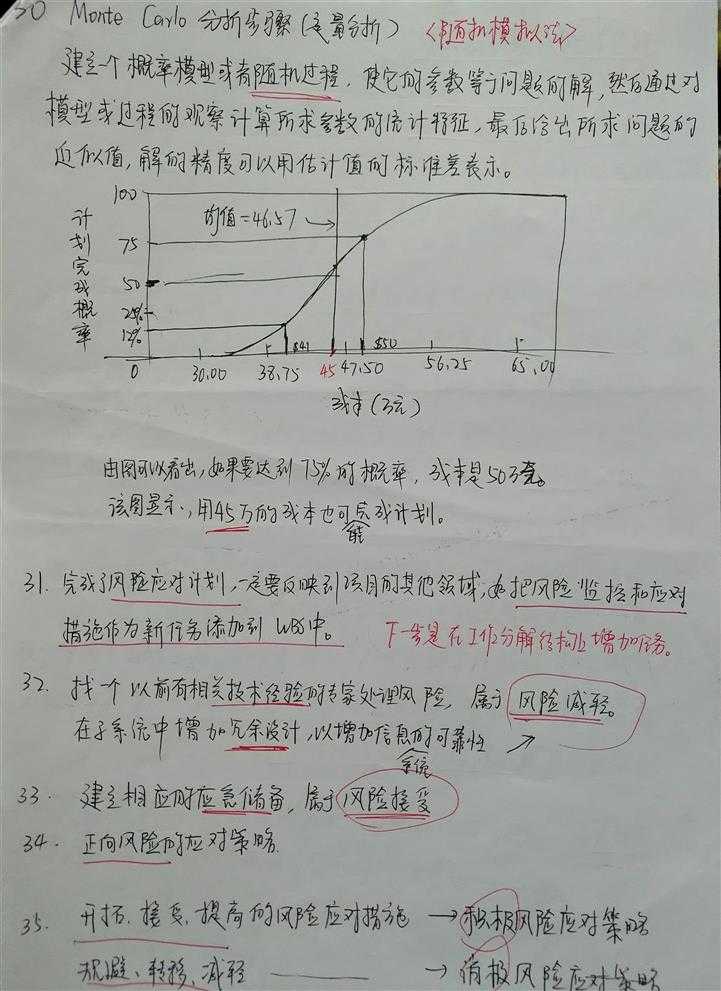 30 Monte Carlo 分析步骤(定量分析) <随机模拟法>
建立一个概率模型或者随机过程,使它的参数等于问题的解,然后通过对
模型或过程的观察计算所求参数的统计特征,最后给出所求问题的
近似值,解的精度可以用估计值的标准差表示。
计划完成概率
100
75
50
25%
12%
均值=46.57
$41
$50
0 30.00 38.75 45 47.50 56.25 65.00
成本(万元)
由图可以看出,如果要达到75%的概率,成本是50万元。
该图显示,用45万的成本也可能完成计划。
31. 完成了风险应对计划,一定要反映到项目的其他领域,如把风险监控和应对
措施作为新任务添加到WBS中。 下一步是在工作分解结构上增加任务。
32. 找一个以前有相关技术经验的专家处理风险,属于风险减轻。
在子系统中增加冗余设计,以增加信息系统的可靠性
33. 建立相应的应急储备,属于风险接受
34. 正向风险的应对策略
35. 开拓、接受、提高的风险应对措施 → 积极风险应对策略
规避、转移、减轻 —— → 消极风险应对策略